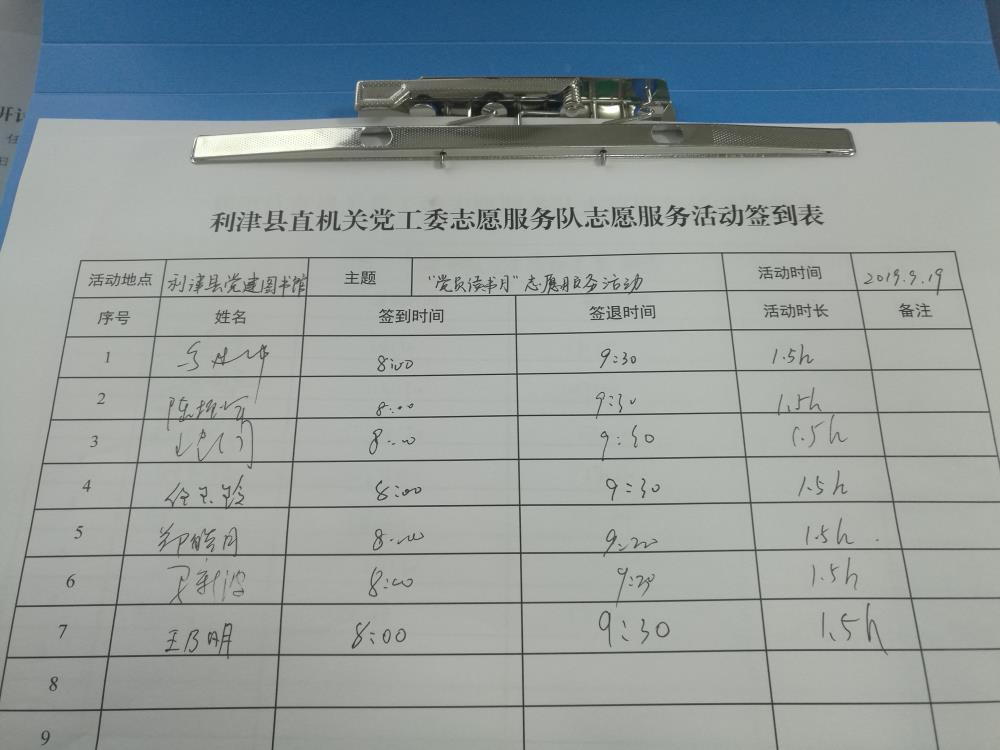 利津县直机关党工委志愿服务队志愿服务活动签到表
活动地点 利津县党建图书馆 主题 “党员读书月”志愿服务活动 活动时间 2019.9.19
序号 姓名 签到时间 签退时间 活动时长 备注
1 8:00 9:30 1.5h
2 8:00 9:30 1.5h
3 8:00 9:30 1.5h
4 任玉玲 8:00 9:30 1.5h
5 郑皓月 8:00 1.5h
6 8:00 1.5h
7 王乃明 8:00 9:30 1.5h
8
9